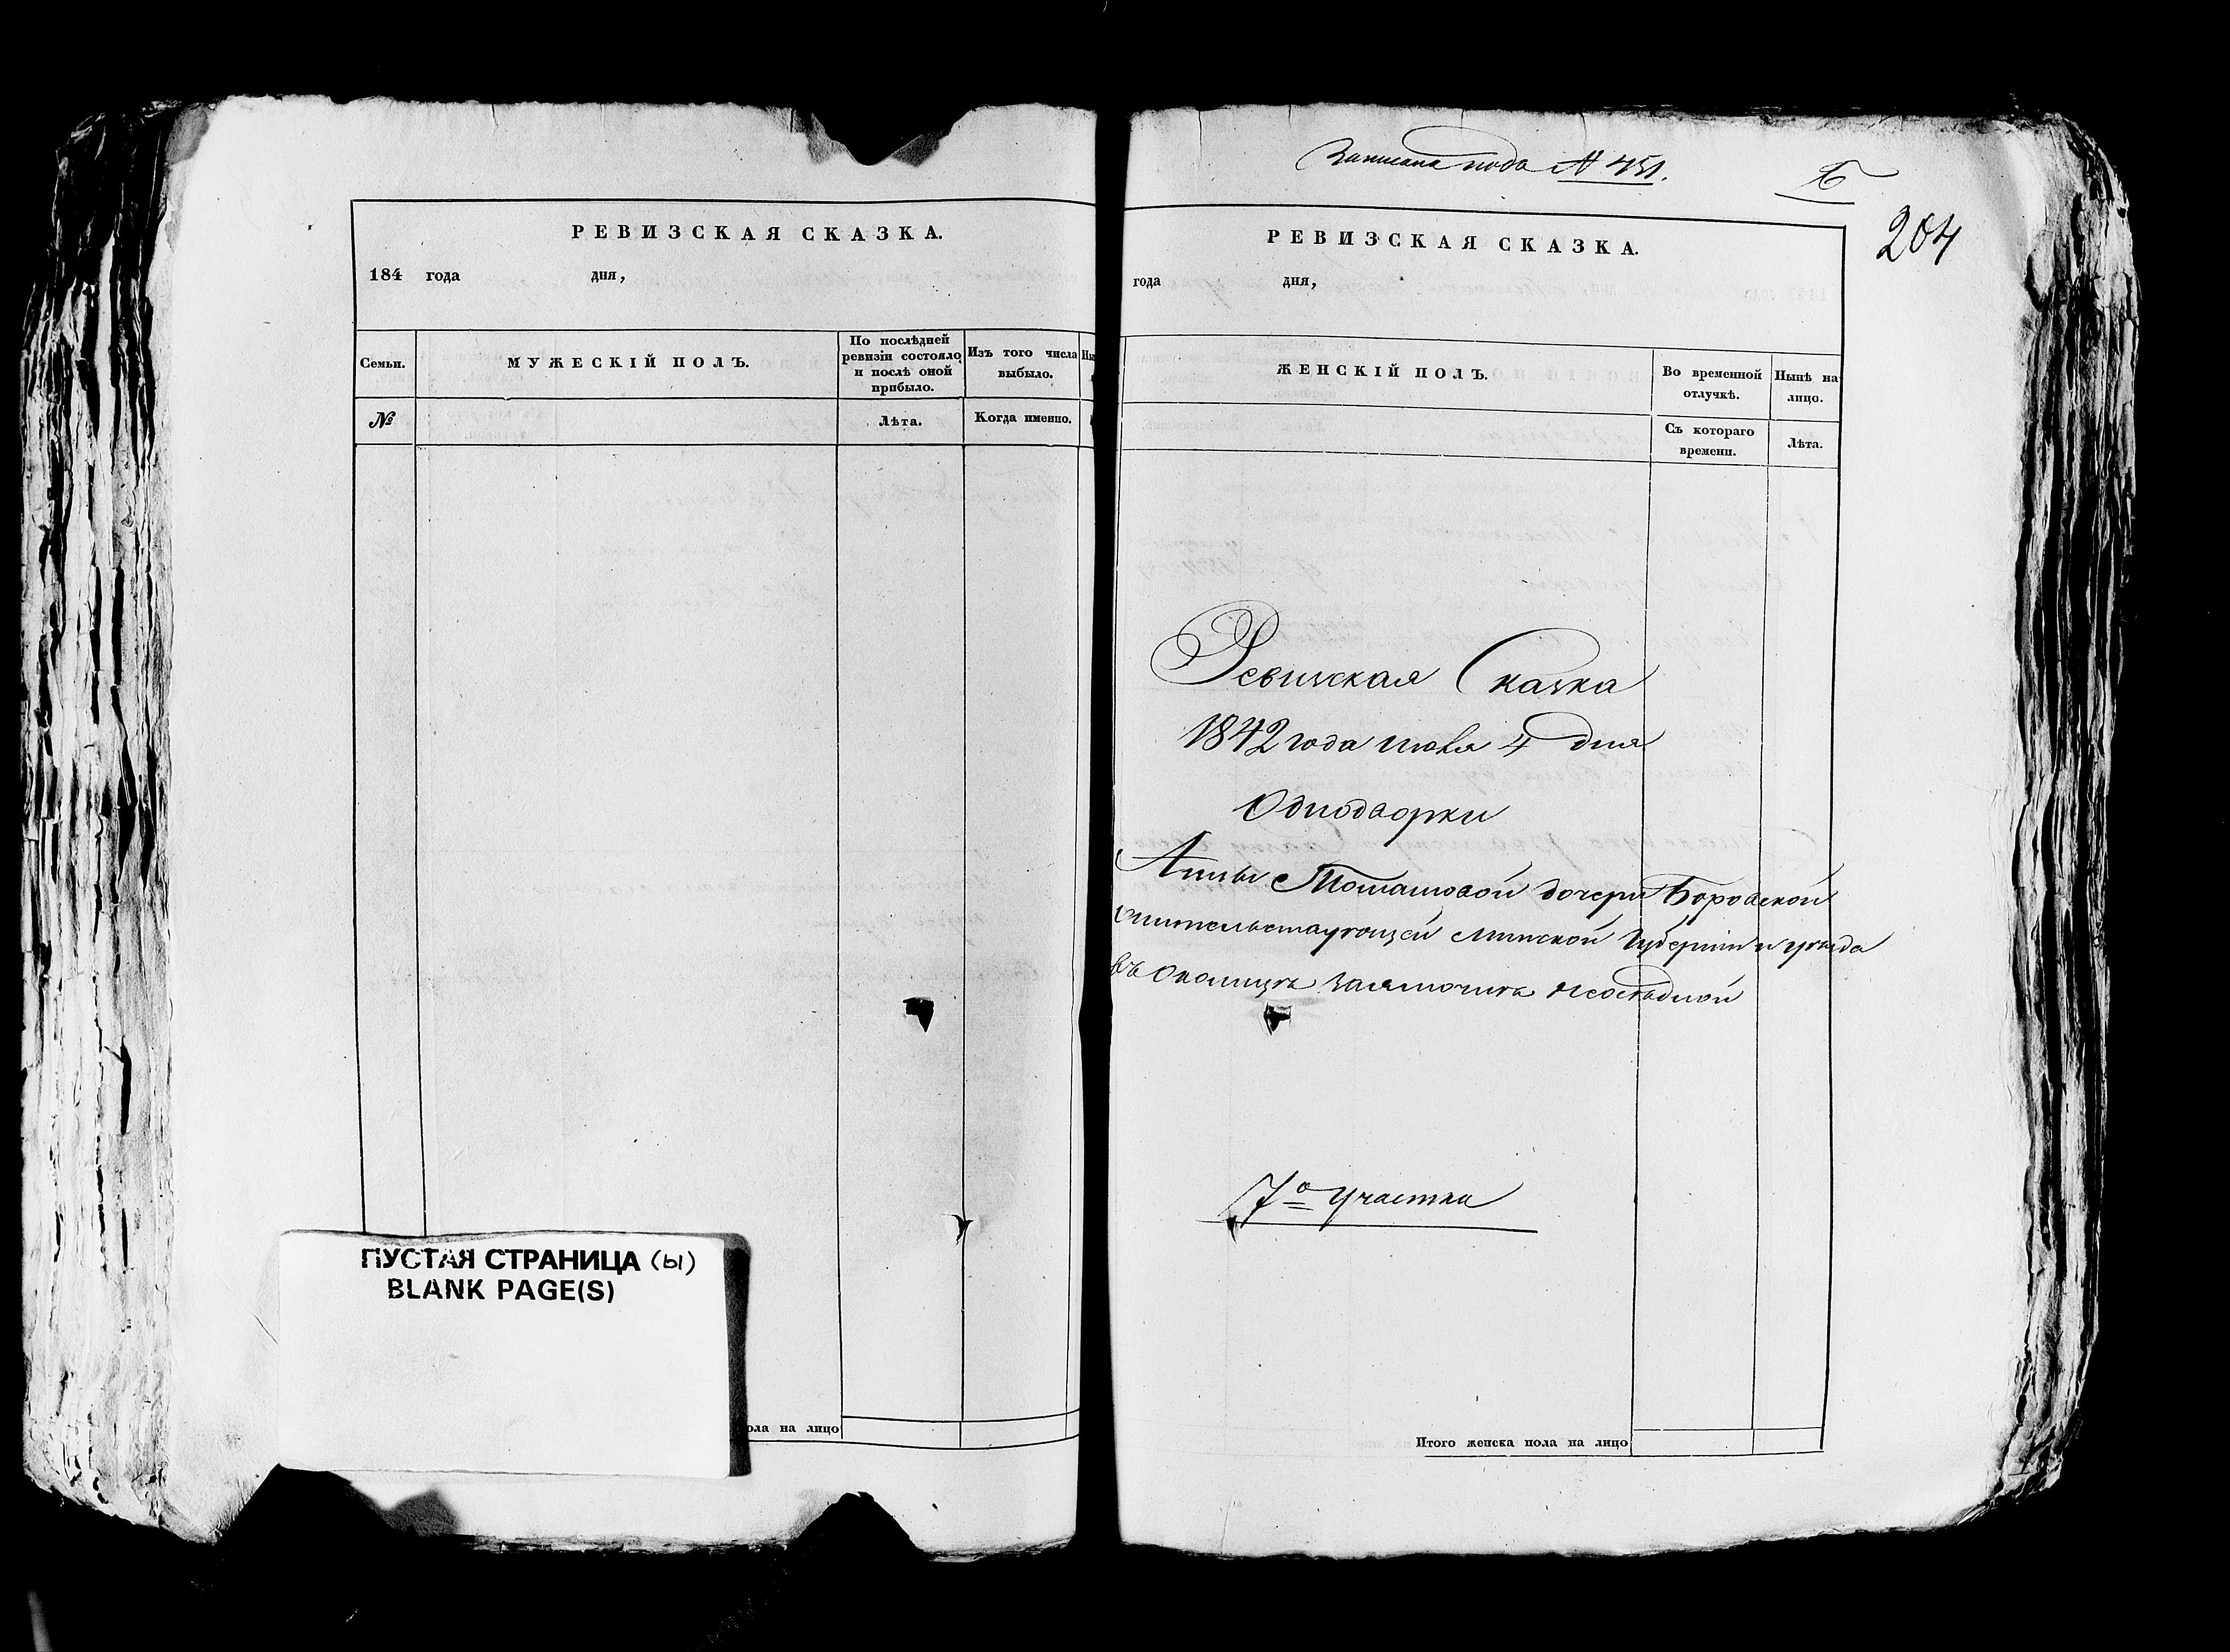 РЕВИЗСКАЯ СКАЗКА.
184 года дня,
Семьи. МУЖЕСКІЙ ПОЛЪ. По послѣдней ревизіи состояло и послѣ оной прибыло. Изъ того числа выбыло.
№ Лѣта. Когда именно.
ПУСТАЯ СТРАНИЦА (ы)
BLANK PAGE(S)
пола на лицо
Записана подъ № 451.
204
РЕВИЗСКАЯ СКАЗКА.
года дня,
ЖЕНСКІЙ ПОЛЪ. Во временной отлучкѣ. Нынѣ на лицо.
Съ котораго времени. Лѣта.
Ревизская Сказка
1842 года июля 4 дня
Однодворки
Анны Томашовой дочери Боровской
жительствующей Минской Губерніи и уѣзда
въ Околицѣ неосѣдлой
7о участка
Итого женска пола на лицо